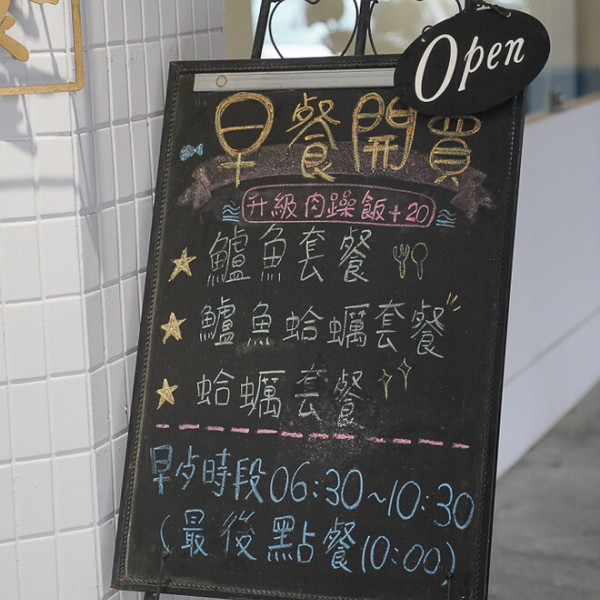 Open
早餐開賣
升級肉躁飯+20
鱸魚套餐
鱸魚蛤蠣套餐
蛤蠣套餐
早夕時段06:30~10:30
(最後點餐10:00)